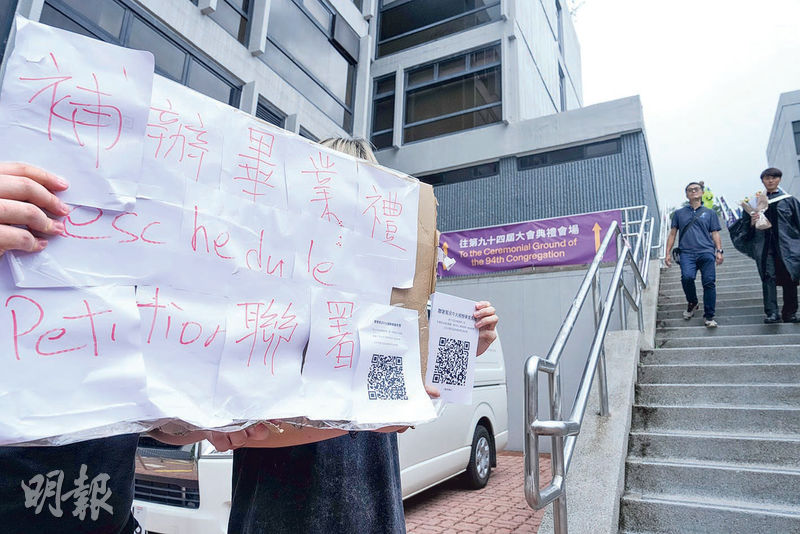 補辦畢業禮
Reschedule
Petition聯署
往第九十四屆大會典禮會場
To the Ceremonial Ground of
the 94th Congregation
明報